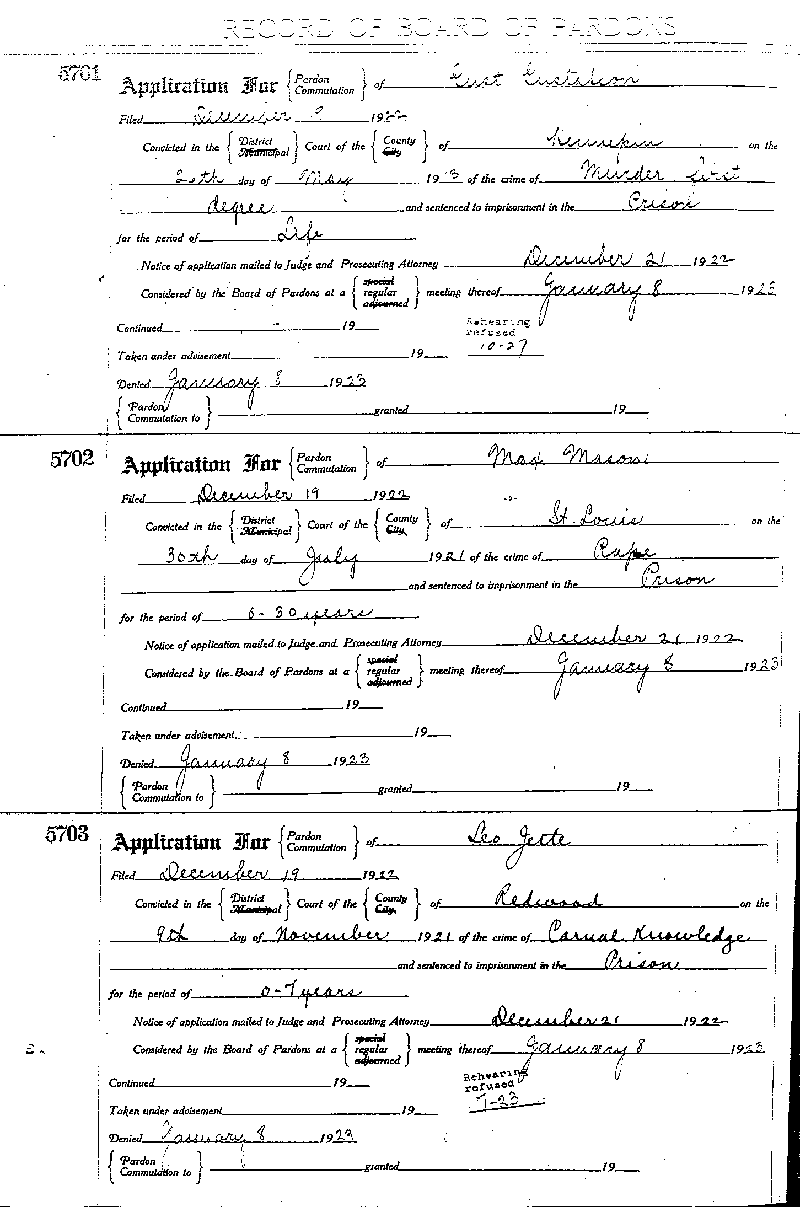 RECORD OF BOARD OF PARDONS
5701
Application For { Pardon Commutation } of Gust Gustafson
Filed December 9 1922
Convicted in the { District Municipal } Court of the { County City } of Hennepin on the
20th day of May 1913 of the crime of Murder first
degree and sentenced to imprisonment in the Prison
for the period of Life
Notice of application mailed to Judge and Prosecuting Attorney December 21 1922
Considered by the Board of Pardons at a { special regular adjourned } meeting thereof January 8 1923
Continued 19 Rehearing refused
Taken under advisement 19 10-27
Denied January 8 1923
{ Pardon Commutation to } granted 19
5702
Application For { Pardon Commutation } of Max Mason
Filed December 19 1922
Convicted in the { District Municipal } Court of the { County City } of St. Louis on the
30th day of July 1921 of the crime of Rape
and sentenced to imprisonment in the Prison
for the period of 0-30 years
Notice of application mailed to Judge and Prosecuting Attorney December 21 1922
Considered by the Board of Pardons at a { special regular adjourned } meeting thereof January 8 1923
Continued 19
Taken under advisement 19
Denied January 8 1923
{ Pardon Commutation to } granted 19
5703
Application For { Pardon Commutation } of Leo Jette
Filed December 19 1922
Convicted in the { District Municipal } Court of the { County City } of Redwood on the
9th day of November 1921 of the crime of Carnal Knowledge
and sentenced to imprisonment in the Prison
for the period of 0-7 years
Notice of application mailed to Judge and Prosecuting Attorney December 21 1922
Considered by the Board of Pardons at a { special regular adjourned } meeting thereof January 8 1923
Continued 19 Rehearing refused
Taken under advisement 19 7-23
Denied January 8 1923
{ Pardon Commutation to } granted 19